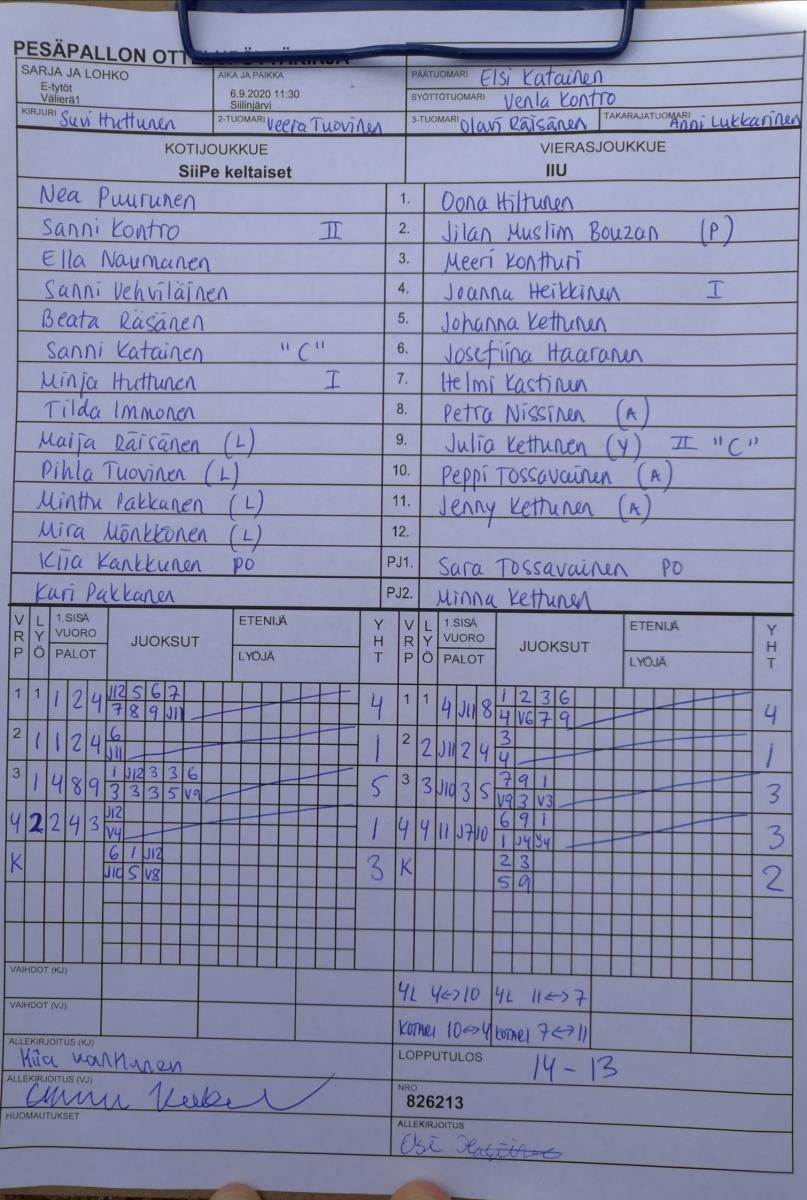 PESÄPALLON OTTELUPÖYTÄKIRJA
SARJA JA LOHKO
E-tytöt
Välierä1
AIKA JA PAIKKA
6.9.2020 11:30
Siilinjärvi
PÄÄTUOMARI Elsi Katainen
SYÖTTÖTUOMARI Venla Kontro
KIRJURI Suvi Huttunen 2-TUOMARI Veera Tuovinen 3-TUOMARI Olavi Räisänen TAKARAJATUOMARI Anni Lukkarinen
KOTIJOUKKUE VIERASJOUKKUE
SiiPe keltaiset IIU
Nea Puurunen 1. Oona Hiltunen
Sanni Kontro II 2. Jilan Muslim Bouzan (P)
Ella Naumanen 3. Meeri Kontturi
Sanni Vehviläinen 4. Joanna Heikkinen I
Beata Räsänen 5. Johanna Kettunen
Sanni Katainen "C" 6. Josefiina Haaranen
Minja Huttunen I 7. Helmi Kastinen
Tilda Immonen 8. Petra Nissinen (A)
Maija Räisänen (L) 9. Julia Kettunen (Y) II "C"
Pihla Tuovinen (L) 10. Peppi Tossavainen (A)
Minttu Pakkanen (L) 11. Jenny Kettunen (A)
Mira Mönkkönen (L) 12.
Kiia Kankkunen PO PJ1. Sara Tossavainen PO
Kari Pakkanen PJ2. Minna Kettunen
VRP LYÖ 1.SISÄ VUORO PALOT JUOKSUT ETENIJÄ LYÖJÄ YHT VRP LYÖ 1.SISÄ VUORO PALOT JUOKSUT ETENIJÄ LYÖJÄ YHT
1 1 1 2 4 J12 5 6 7 4 1 1 4 J11 8 1 2 3 6 4
7 8 9 J11 4 V6 7 9
2 1 1 2 4 6 1 2 2 J11 2 4 3 1
J11 4
3 1 4 8 9 1 J12 3 3 6 5 3 3 J10 3 5 7 9 1 3
3 3 3 5 V9 V9 3 V3
4 2 2 4 3 J12 1 4 4 11 J7 10 6 9 1 3
V4 1 J4 Y4
K 6 1 J12 3 K 2 3 2
J10 5 V8 5 9
VAIHDOT (KJ) 4L 4↔10 4L 11↔7
VAIHDOT (VJ) Kotiu1 10↔4 Kotiu1 7↔11
ALLEKIRJOITUS (KJ)
Kiia Kankkunen
LOPPUTULOS 14-13
ALLEKIRJOITUS (VJ)
NRO
826213
HUOMAUTUKSET
ALLEKIRJOITUS
Elsi Katainen